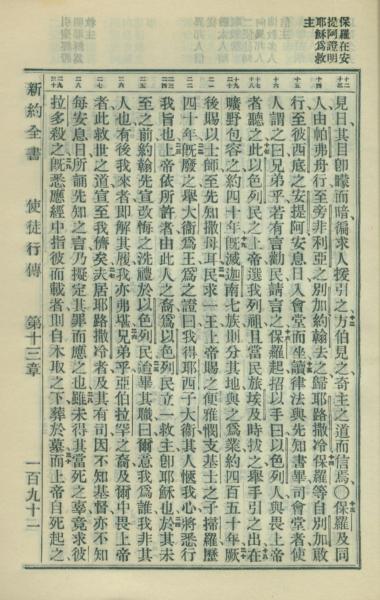 保羅在安
提阿證明
耶穌爲救
主
見日其目卽矇而暗徧求人援引之方伯見之奇主之道而信焉〇保羅及同
人由帕弗舟行至旁非利亞之別加約翰去之歸耶路撒冷保羅等自別加敢
行至彼西底之安提阿安息日入會堂而坐讀律法與先知書畢司會堂者使
人謂之曰兄弟乎若有言勸民請言之保羅起招以手曰以色列人與畏上帝
者聽之此以色列民之上帝選我列祖且當民旅埃及時拔之舉手引之出在
曠野包容之約四十年旣滅迦南七族則分其地與之爲業約四百五十年厥
後賜以士師至先知撒母耳民求一王上帝賜之便雅憫支基士之子掃羅歷
四十年旣廢之舉大衛爲王爲之證曰我得耶西子大衛其人愜我心將悉行
我旨也上帝依所許者由此人之裔爲以色列民立一救主卽耶穌也於其未
至之前約翰先宣改悔之洗禮於以色列民諭畢其職曰爾意我爲誰我非其
人也有後我來者卽解其履我亦弗堪兄弟乎亞伯拉罕之裔及爾中畏上帝
者此救世之道宣至我儕矣夫居耶路撒冷者及其有司因不知基督亦不知
每安息日所誦先知之言乃擬定其罪而應之也雖未得其當死之辜竟求彼
拉多殺之旣悉應經中指彼而載者則自木取之下葬於墓而上帝自死起之
新約全書　使徒行傳　第十三章　一百九十二